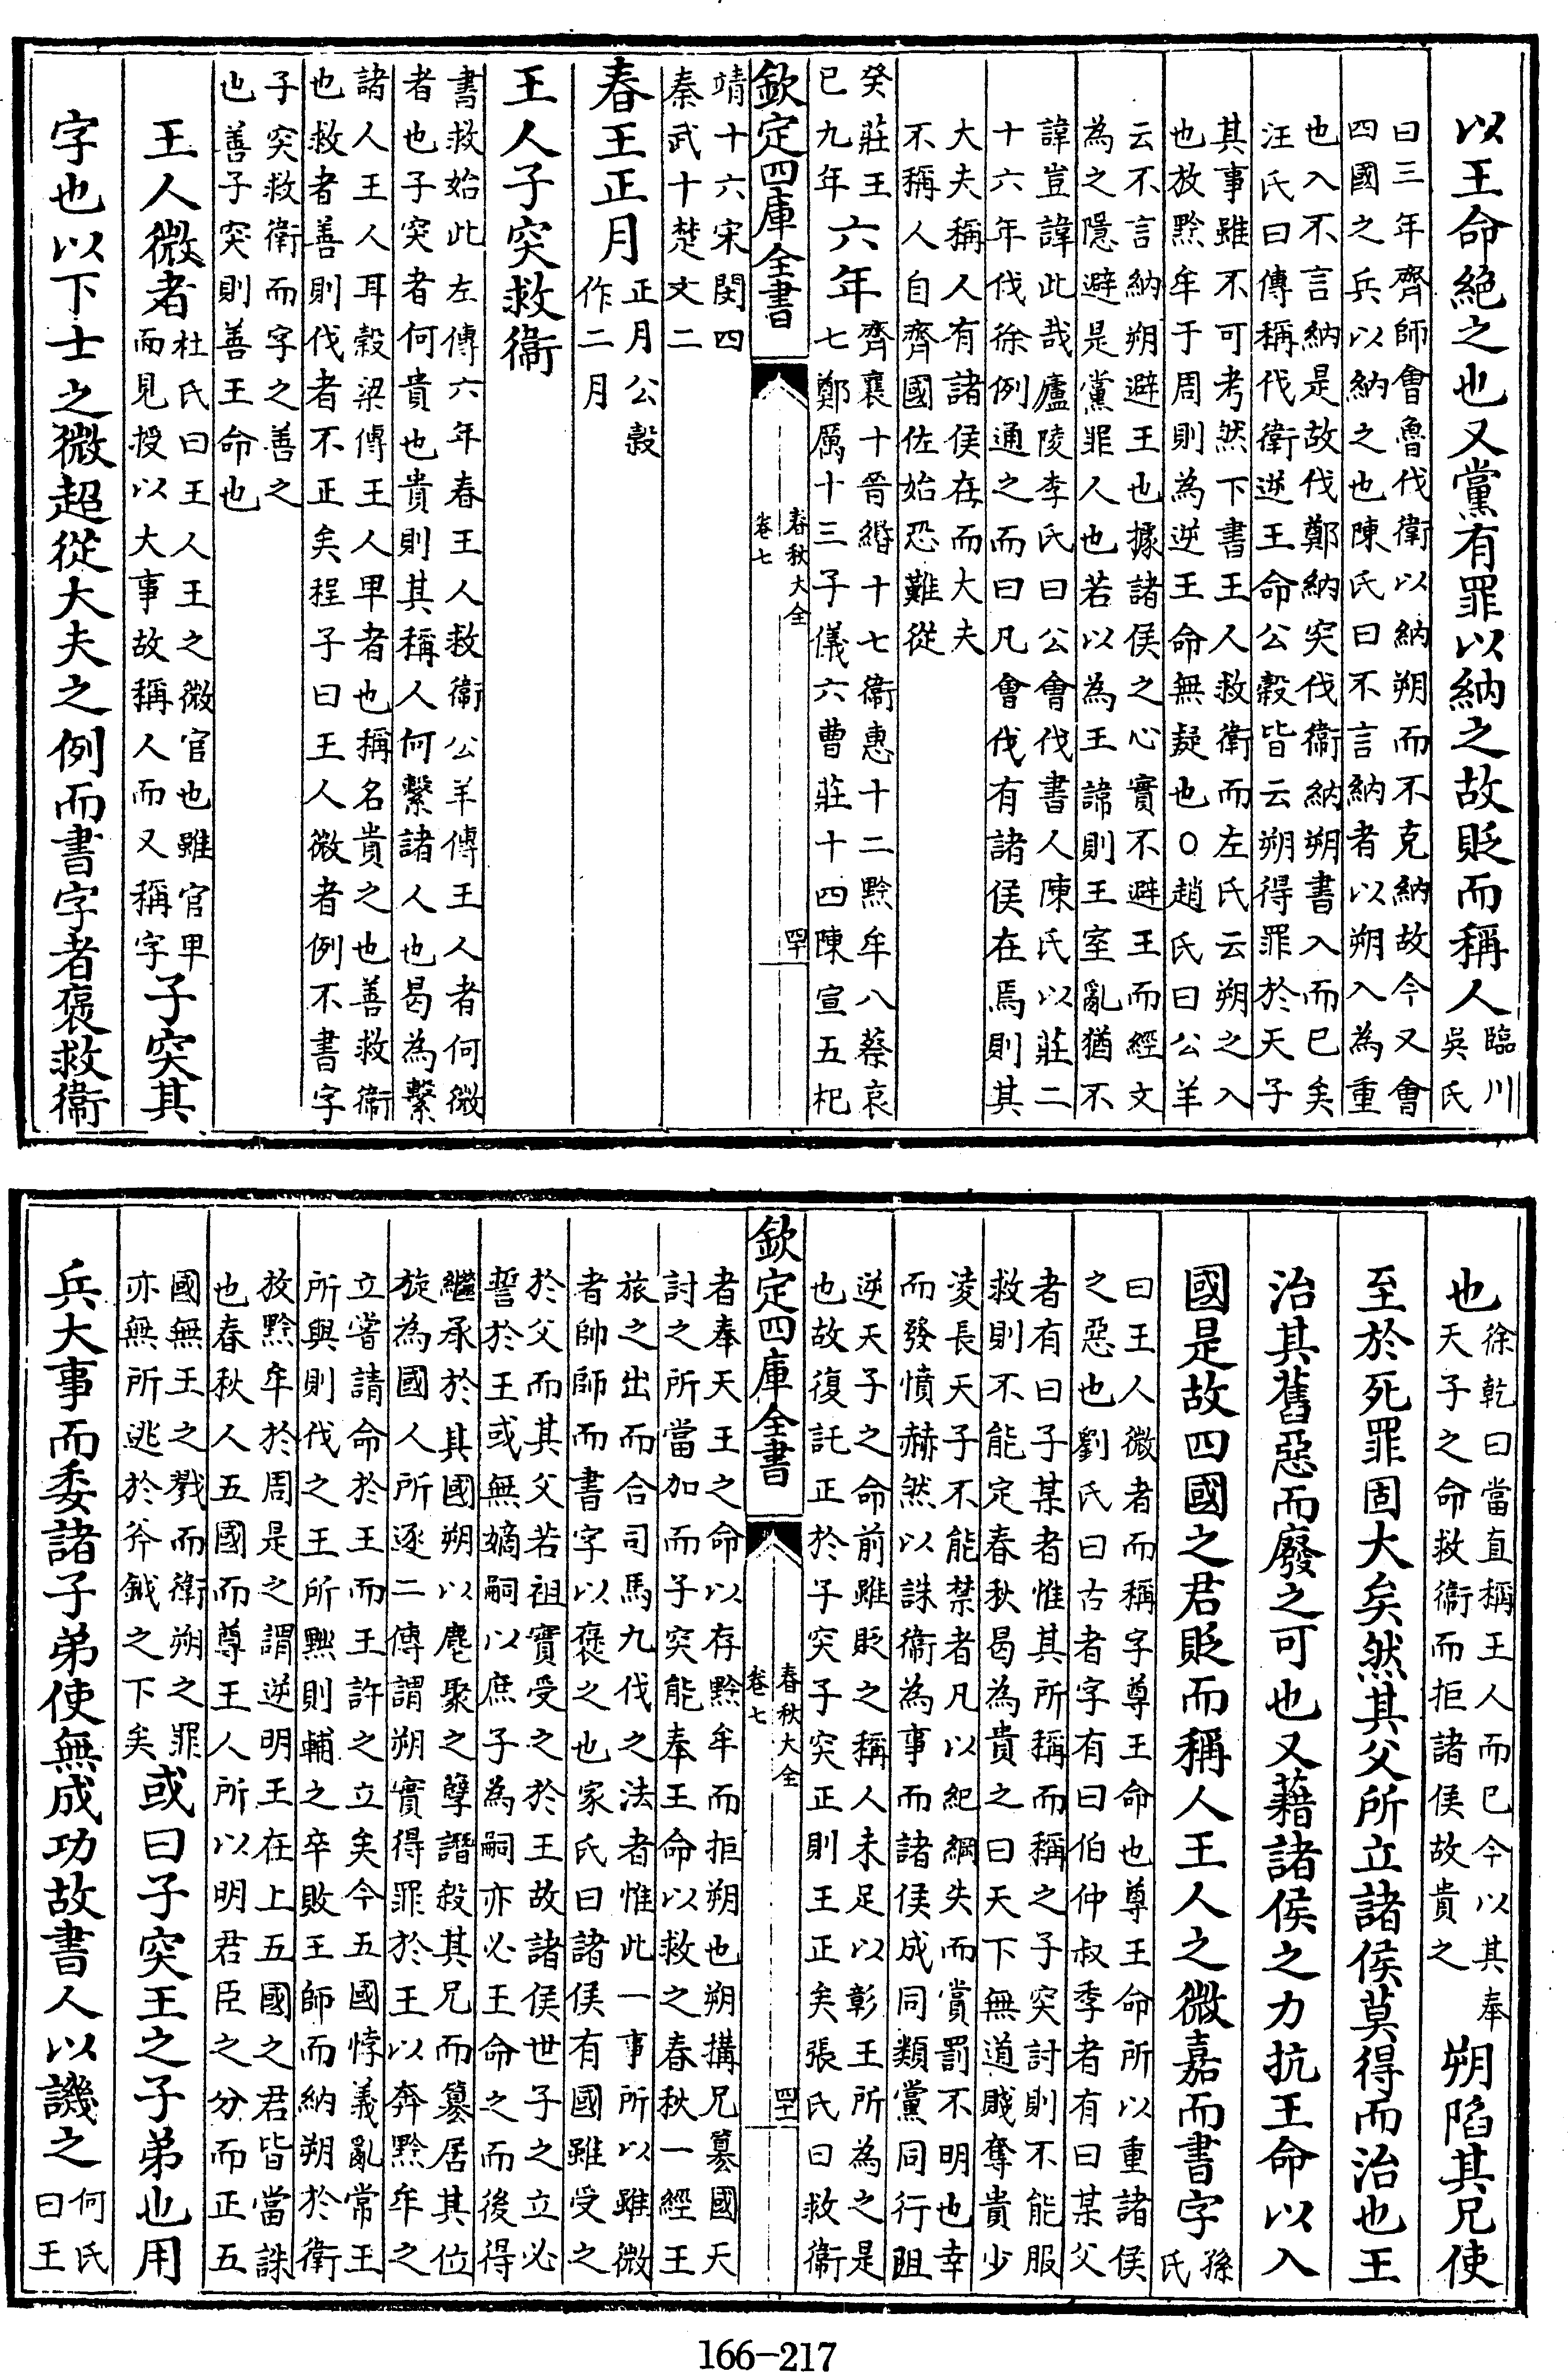 以王命絶之也又黨有罪以納之故貶而稱人臨川
吳氏
曰三年齊師會魯伐衛以納朔而不克納故今又會
四國之兵以納之也陳氏曰不言納者以朔入為重
也入不言納是故伐鄭納突伐衛納朔書入而已矣
汪氏曰傳稱伐衛逆王命公穀皆云朔得罪於天子
其事雖不可考然下書王人救衛而左氏云朔之入
也放黔牟于周則為逆王命無疑也○趙氏曰公羊
云不言納朔避王也據諸侯之心實不避王而經文
為之隱避是黨罪人也若以為王諱則王室亂猶不
諱豈諱此哉廬陵李氏曰公會伐書人陳氏以莊二
十六年伐徐例通之而曰凡會伐有諸侯在焉則其
大夫稱人有諸侯在而大夫
不稱人自齊國佐始恐難從
癸莊王
巳九年
六年
齊襄十晉緡十七衛惠十二黔牟八蔡哀
七鄭厲十三子儀六曹莊十四陳宣五杞
欽定四庫全書
春秋大全
卷七
罕
靖十六宋閔四
秦武十楚文二
春王正月正月公穀
作二月
王人子突救衛
書救始此左傳六年春王人救衛公羊傳王人者何微
者也子突者何貴也貴則其稱人何繫諸人也曷為繫
諸人王人耳穀梁傳王人卑者也稱名貴之也善救衛
也救者善則伐者不正矣程子曰王人微者例不書字
子突救衛而字之善之
也善子突則善王命也
王人微者杜氏曰王人王之微官也雖官卑
而見授以大事故稱人而又稱字子突其
字也以下士之微超從大夫之例而書字者褒救衛
也徐乾曰當直稱王人而已今以其奉
天子之命救衛而拒諸侯故貴之朔陷其兄使
至於死罪固大矣然其父所立諸侯莫得而治也王
治其舊惡而廢之可也又藉諸侯之力抗王命以入
國是故四國之君貶而稱人王人之微嘉而書字孫
氏
曰王人微者而稱字尊王命也尊王命所以重諸侯
之惡也劉氏曰古者字有曰伯仲叔季者有曰某父
者有曰子某者惟其所稱而稱之子突討則不能服
救則不能定春秋曷為貴之曰天下無道賤奪貴少
淩長天子不能禁者凡以紀綱失而賞罰不明也幸
而發憤赫然以誅衛為事而諸侯成同類黨同行阻
逆天子之命前雖貶之稱人未足以彰王所為之是
也故復託正於子突子突正則王正矣張氏曰救衛
欽定四庫全書
春秋大全
卷七
罕一
者奉天王之命以存黔牟而拒朔也朔搆兄簒國天
討之所當加而子突能奉王命以救之春秋一經王
旅之出而合司馬九伐之法者惟此一事所以雖微
者帥師而書字以褒之也家氏曰諸侯有國雖受之
於父而其父若祖實受之於王故諸侯世子之立必
誓於王或無嫡嗣以庶子為嗣亦必王命之而後得
繼承於其國朔以麀聚之孽譖殺其兄而簒居其位
旋為國人所逐二傳謂朔實得罪於王以奔黔牟之
立嘗請命於王而王許之立矣今五國悖義亂常王
所與則伐之王所黜則輔之卒敗王師而納朔於衛
放黔牟於周是之謂逆明王在上五國之君皆當誅
也春秋人五國而尊王人所以明君臣之分而正五
國無王之戮而衛朔之罪
亦無所逃於斧鉞之下矣或曰子突王之子弟也用
兵大事而委諸子弟使無成功故書人以譏之何氏
曰王
166-217